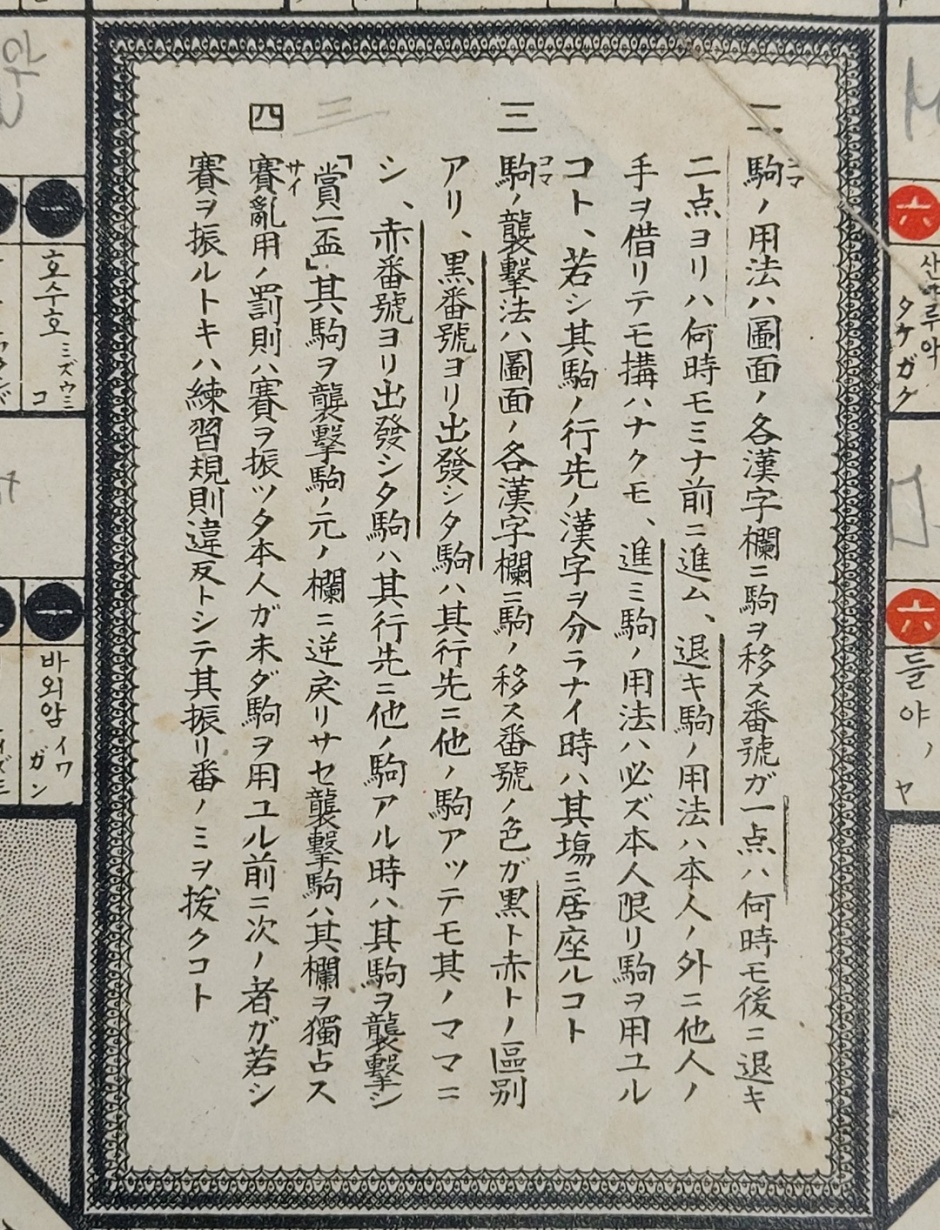 二 駒ノ用法ハ圖面ノ各漢字欄ニ駒ヲ移ス番號ガ一点ハ何時モ後ニ退キ
コマ
二点ヨリハ何時モミナ前ニ進ム、退キ駒ノ用法ハ本人ノ外ニ他人ノ
手ヲ借リテモ搆ハナクモ、進ミ駒ノ用法ハ必ズ本人限リ駒ヲ用ユル
コト、若シ其駒ノ行先ノ漢字ヲ分ラナイ時ハ其塲ニ居座ルコト
三 駒ノ襲擊法ハ圖面ノ各漢字欄ニ駒ノ移ス番號ノ色ガ黒ト赤トノ區別
コマ
アリ、黒番號ヨリ出發シタ駒ハ其行先ニ他ノ駒アッテモ其ノママニ
シ、赤番號ヨリ出發シタ駒ハ其行先ニ他ノ駒アル時ハ其駒ヲ襲擊シ
「賞一盃」其駒ヲ襲擊駒ノ元ノ欄ニ逆戻リサセ襲擊駒ハ其欄ヲ獨占ス
三
四 賽亂用ノ罰則ハ賽ヲ振ッタ本人ガ未ダ駒ヲ用ユル前ニ次ノ者ガ若シ
サイ
賽ヲ振ルトキハ練習規則違反トシテ其振リ番ノミヲ拔クコト
六
산마루악
タケガク
六
들야
ノ
ヤ
一
호수호
ミズウミ
コ
一
바외암
イワ
ガン